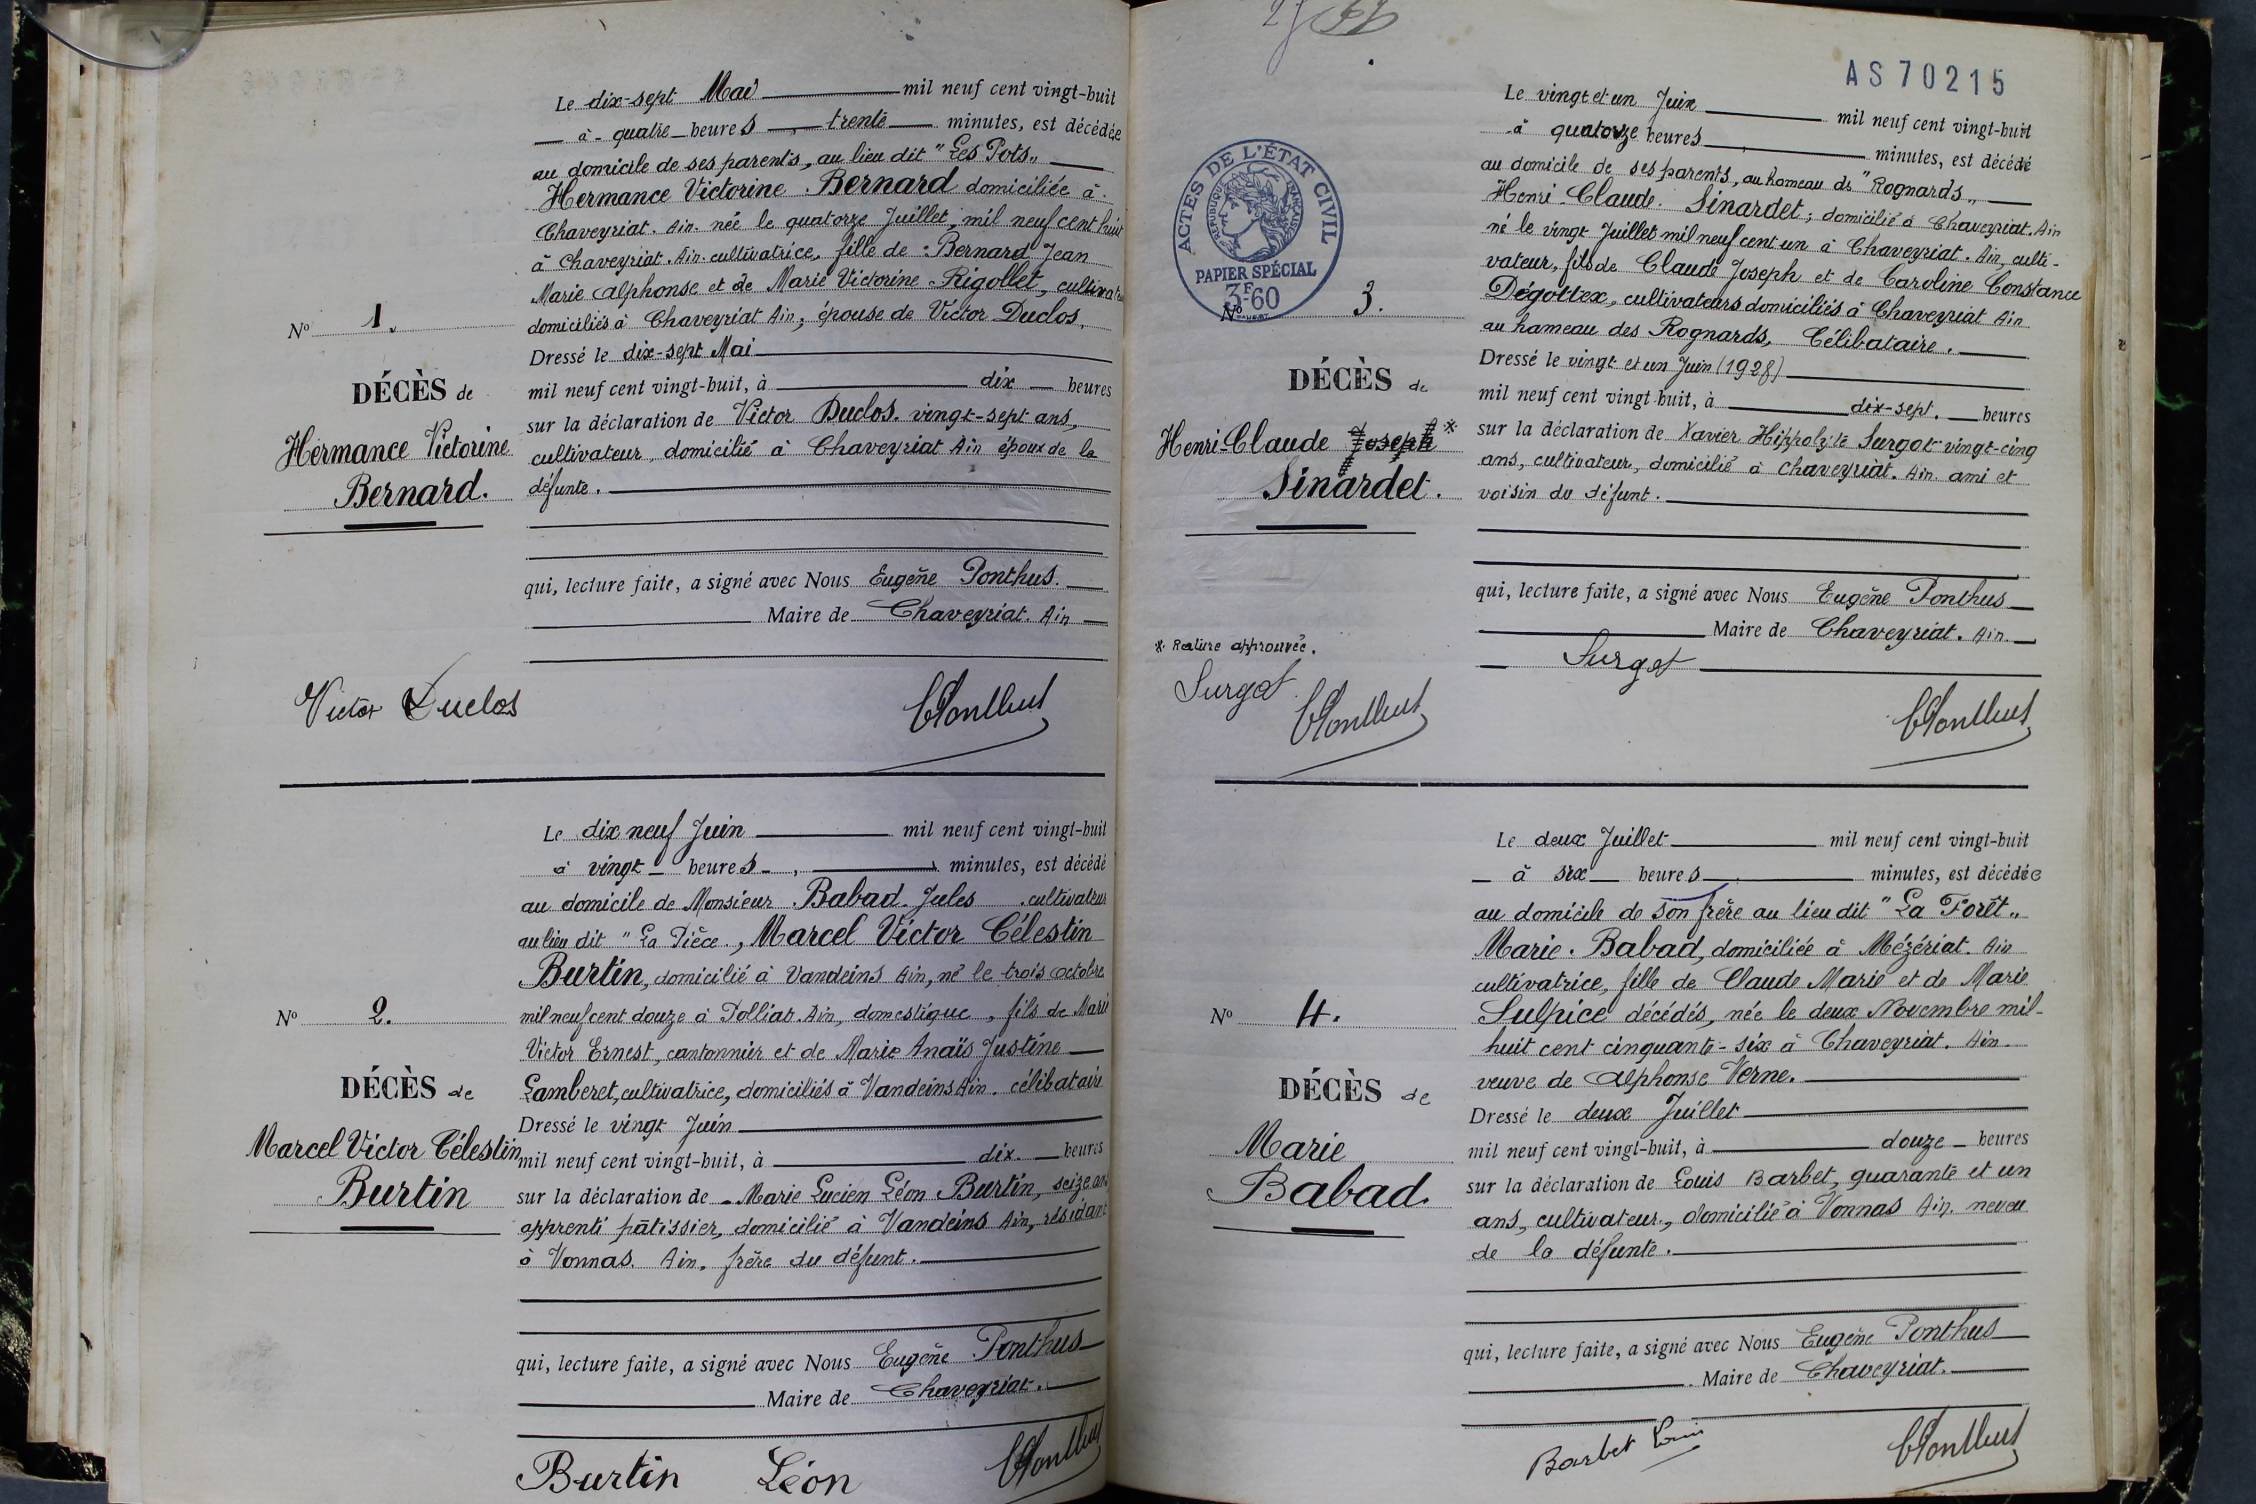 Le dix-sept Mai mil neuf cent vingt-huit
à quatre heures, trente minutes, est décédée
au domicile de ses parents, au lieu dit "Les Pots"
Hermance Victorine Bernard domiciliée à
Chaveyriat. Ain. née le quatorze Juillet, mil neuf cent huit
à Chaveyriat. Ain. cultivatrice, fille de Bernard Jean
Marie Alphonse et de Marie Victorine Rigollet,
domiciliés à Chaveyriat Ain, épouse de Victor Duclos.
Nº 1.
Dressé le dix-sept Mai
mil neuf cent vingt-huit, à dix heures
DÉCÈS de
sur la déclaration de Victor Duclos. vingt-sept ans,
Hermance Victorine
cultivateur, domicilié à Chaveyriat Ain époux de la
Bernard.
défunte.
qui, lecture faite, a signé avec Nous Eugène Ponthus.
Maire de Chaveyriat. Ain
Victor Duclos
Le dix neuf Juin mil neuf cent vingt-huit
à vingt heures, minutes, est décédé
au domicile de Monsieur Babad Jules cultivateur
au lieu dit "La Pièce", Marcel Victor Célestin
Burtin, domicilié à Vandeins Ain, né le trois octobre
Nº 2.
mil neuf cent douze à Polliat. Ain, domestique, fils de Marie
Victor Ernest, cantonnier et de Marie Anaïs Justine
DÉCÈS de
Lamberet, cultivatrice, domiciliés à Vandeins Ain. célibataire
Dressé le vingt Juin
Marcel Victor Célestin
mil neuf cent vingt-huit, à dix. heures
Burtin
sur la déclaration de Marie Lucien Léon Burtin, seize ans
apprenti pâtissier, domicilié à Vandeins Ain, résidant
à Vonnas. Ain. frère du défunt.
qui, lecture faite, a signé avec Nous Eugène Ponthus
Maire de Chaveyriat.
Burtin Léon
AS 70215
ACTES DE L'ÉTAT CIVIL
RÉPUBLIQUE FRANÇAISE
PAPIER SPÉCIAL
3F60
Le vingt et un Juin mil neuf cent vingt-huit
à quatorze heures, minutes, est décédé
au domicile de ses parents, au hameau ds "Rognards"
Henri Claude. Sinardet; domicilié à Chaveyriat. Ain
né le vingt Juillet mil neuf cent un à Chaveyriat. Ain, culti-
vateur, fils de Claude Joseph et de Caroline Constance
Nº 3.
Dégottex, cultivateurs domiciliés à Chaveyriat Ain
au hameau des Rognards, Célibataire.
Dressé le vingt et un Juin (1928)
DÉCÈS de
mil neuf cent vingt-huit, à dix-sept. heures
Henri-Claude Joseph *
sur la déclaration de Xavier Hippolyte Surgot vingt-cinq
Sinardet.
ans, cultivateur, domicilié à Chaveyriat. Ain. ami et
voisin du défunt.
qui, lecture faite, a signé avec Nous Eugène Ponthus
Maire de Chaveyriat. Ain.
* Rature approuvée.
Surgot
Surgot
Le deux Juillet mil neuf cent vingt-huit
à six heures, minutes, est décédée
au domicile de son frère au lieu dit "La Forêt"
Marie. Babad, domiciliée à Mézériat. Ain
cultivatrice, fille de Claude Marie et de Marie
Nº 4.
Sulpice décédés, née le deux Novembre mil-
huit cent cinquante-six à Chaveyriat. Ain.
DÉCÈS de
veuve de Alphonse Verne.
Dressé le deux Juillet
Marie
mil neuf cent vingt-huit, à douze heures
Babad.
sur la déclaration de Louis Barbet, quarante et un
ans, cultivateur, domicilié à Vonnas Ain. neveu
de la défunte.
qui, lecture faite, a signé avec Nous Eugène Ponthus
Maire de Chaveyriat.
Barbet Louis